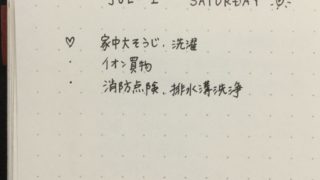 JUL 2 SATURDAY
♡ 家中大そうじ、洗濯
・ イオン買物
・ 消防点険、排水溝洗浄